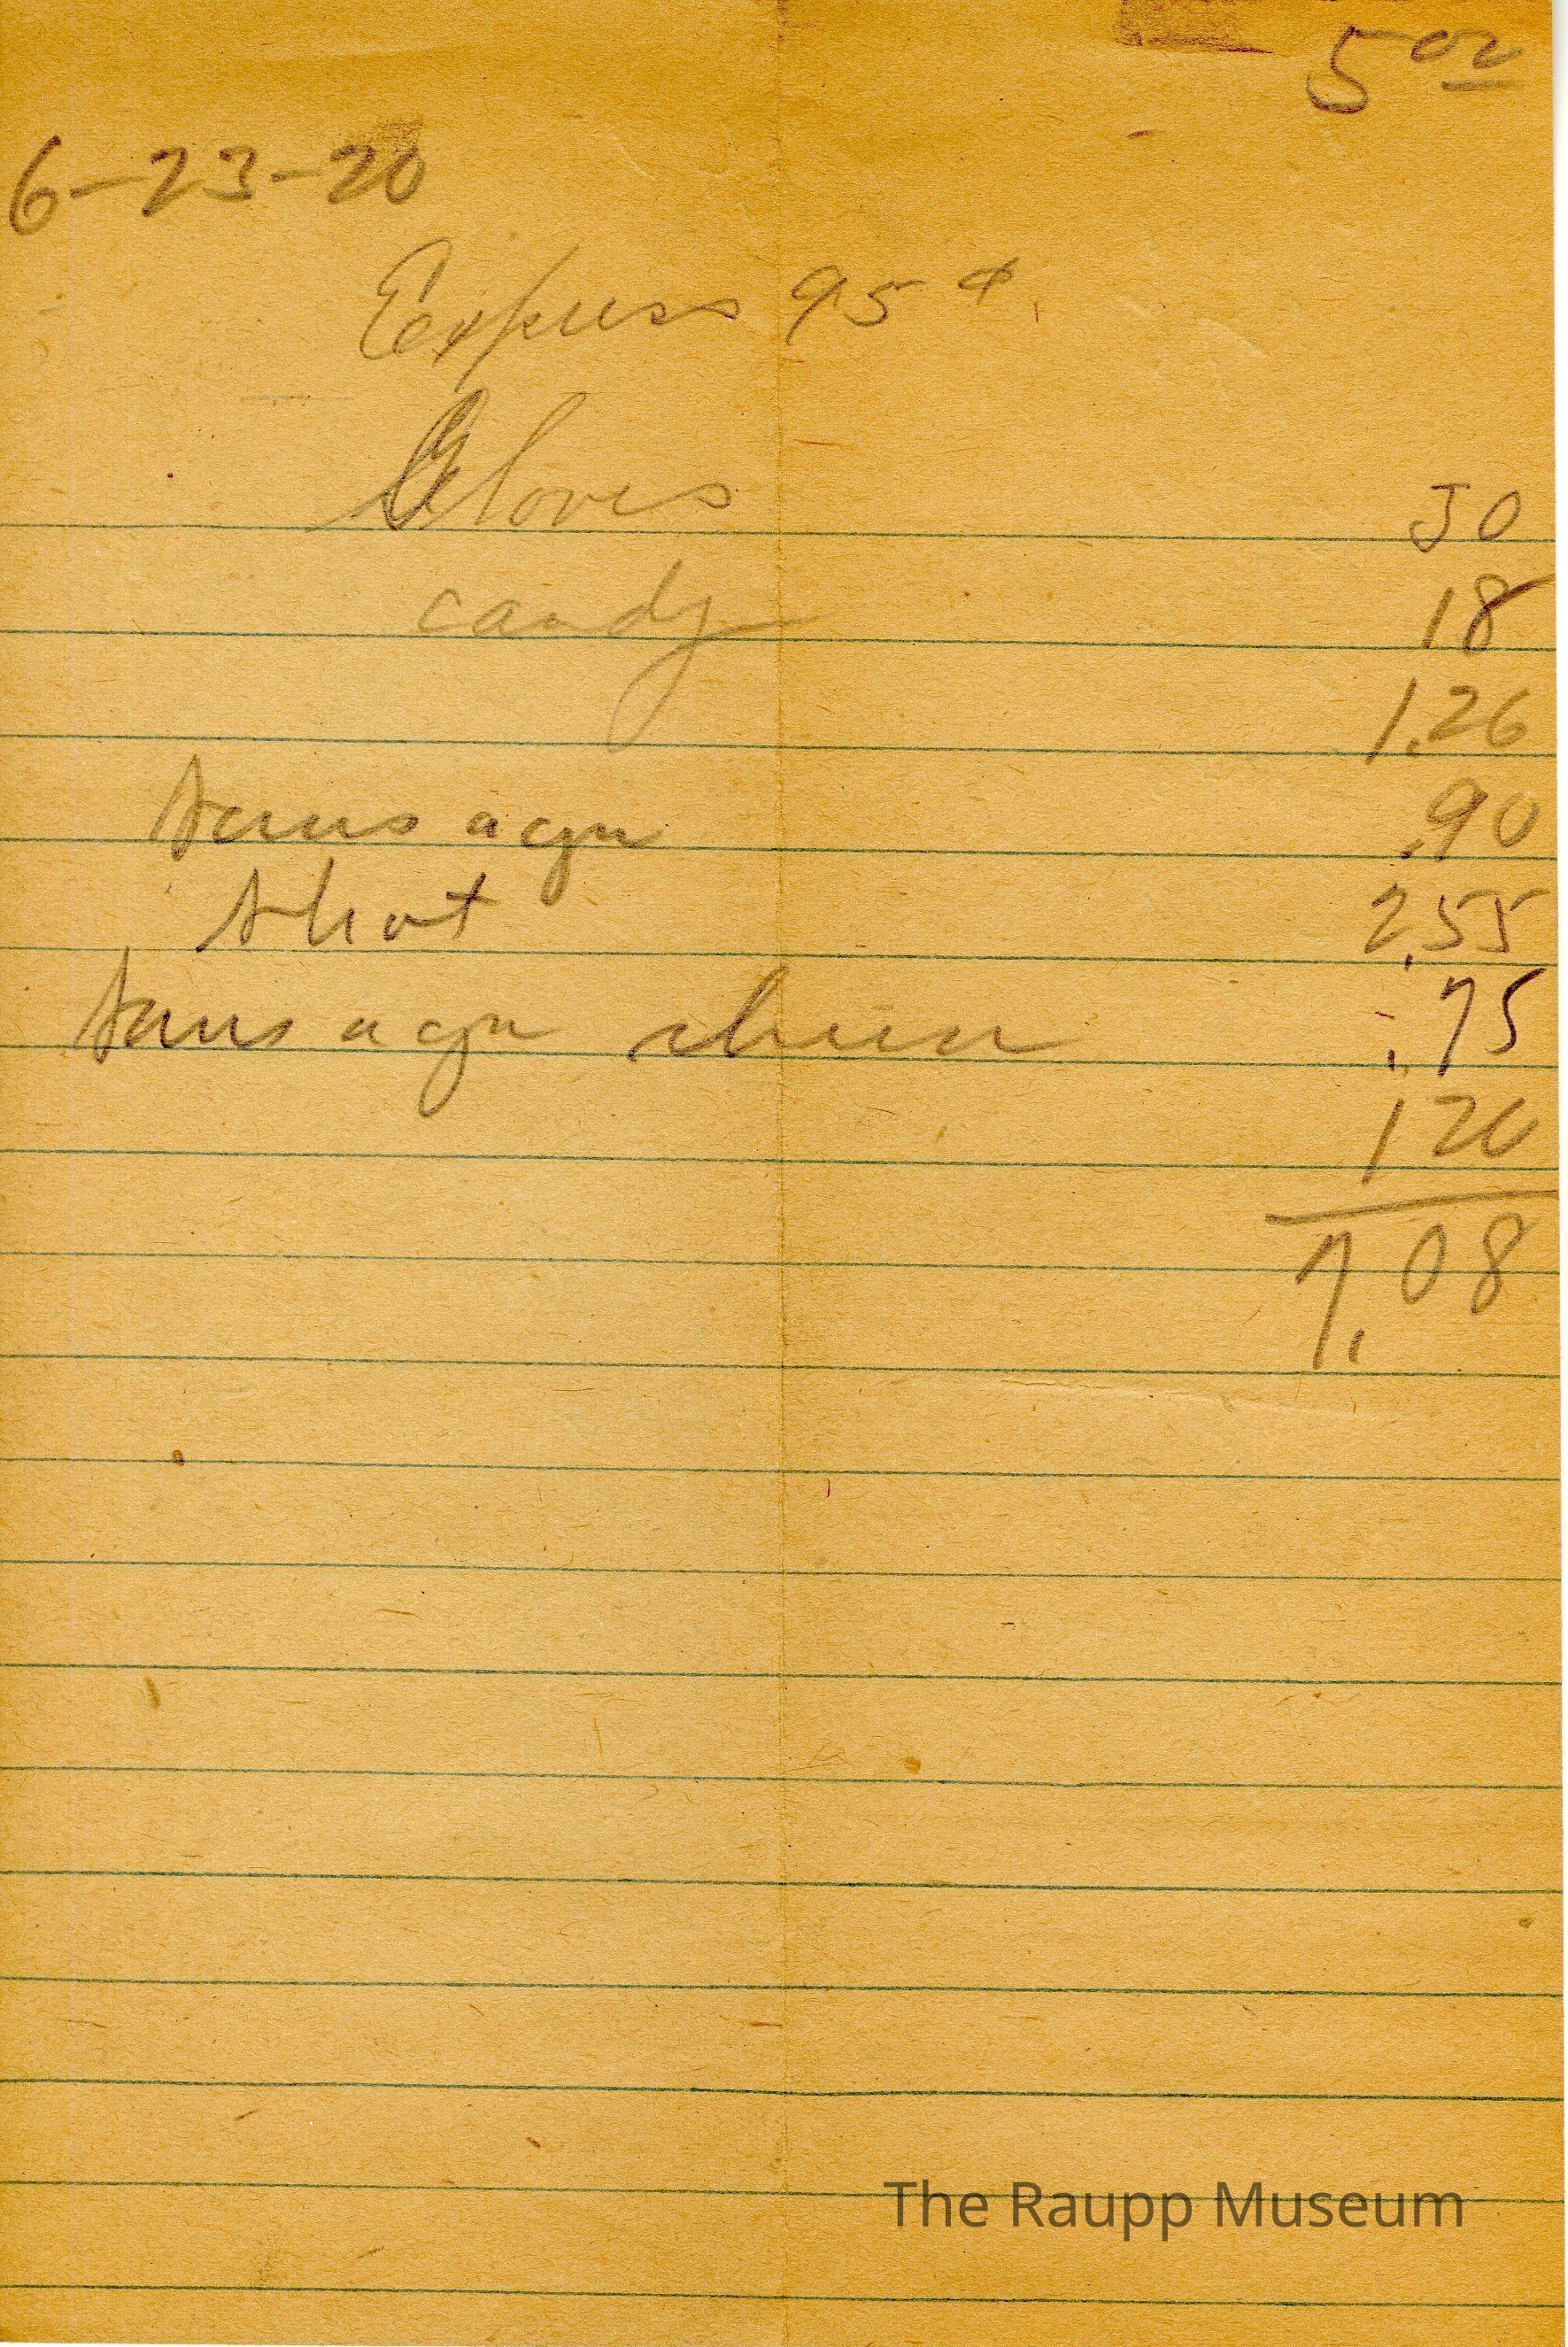 5 00
6-23-20
Express 95 ¢
Gloves 30
candy 18
1.26
sausage .90
shot 2.55
sausage .75
1 20
7.08
The Raupp Museum